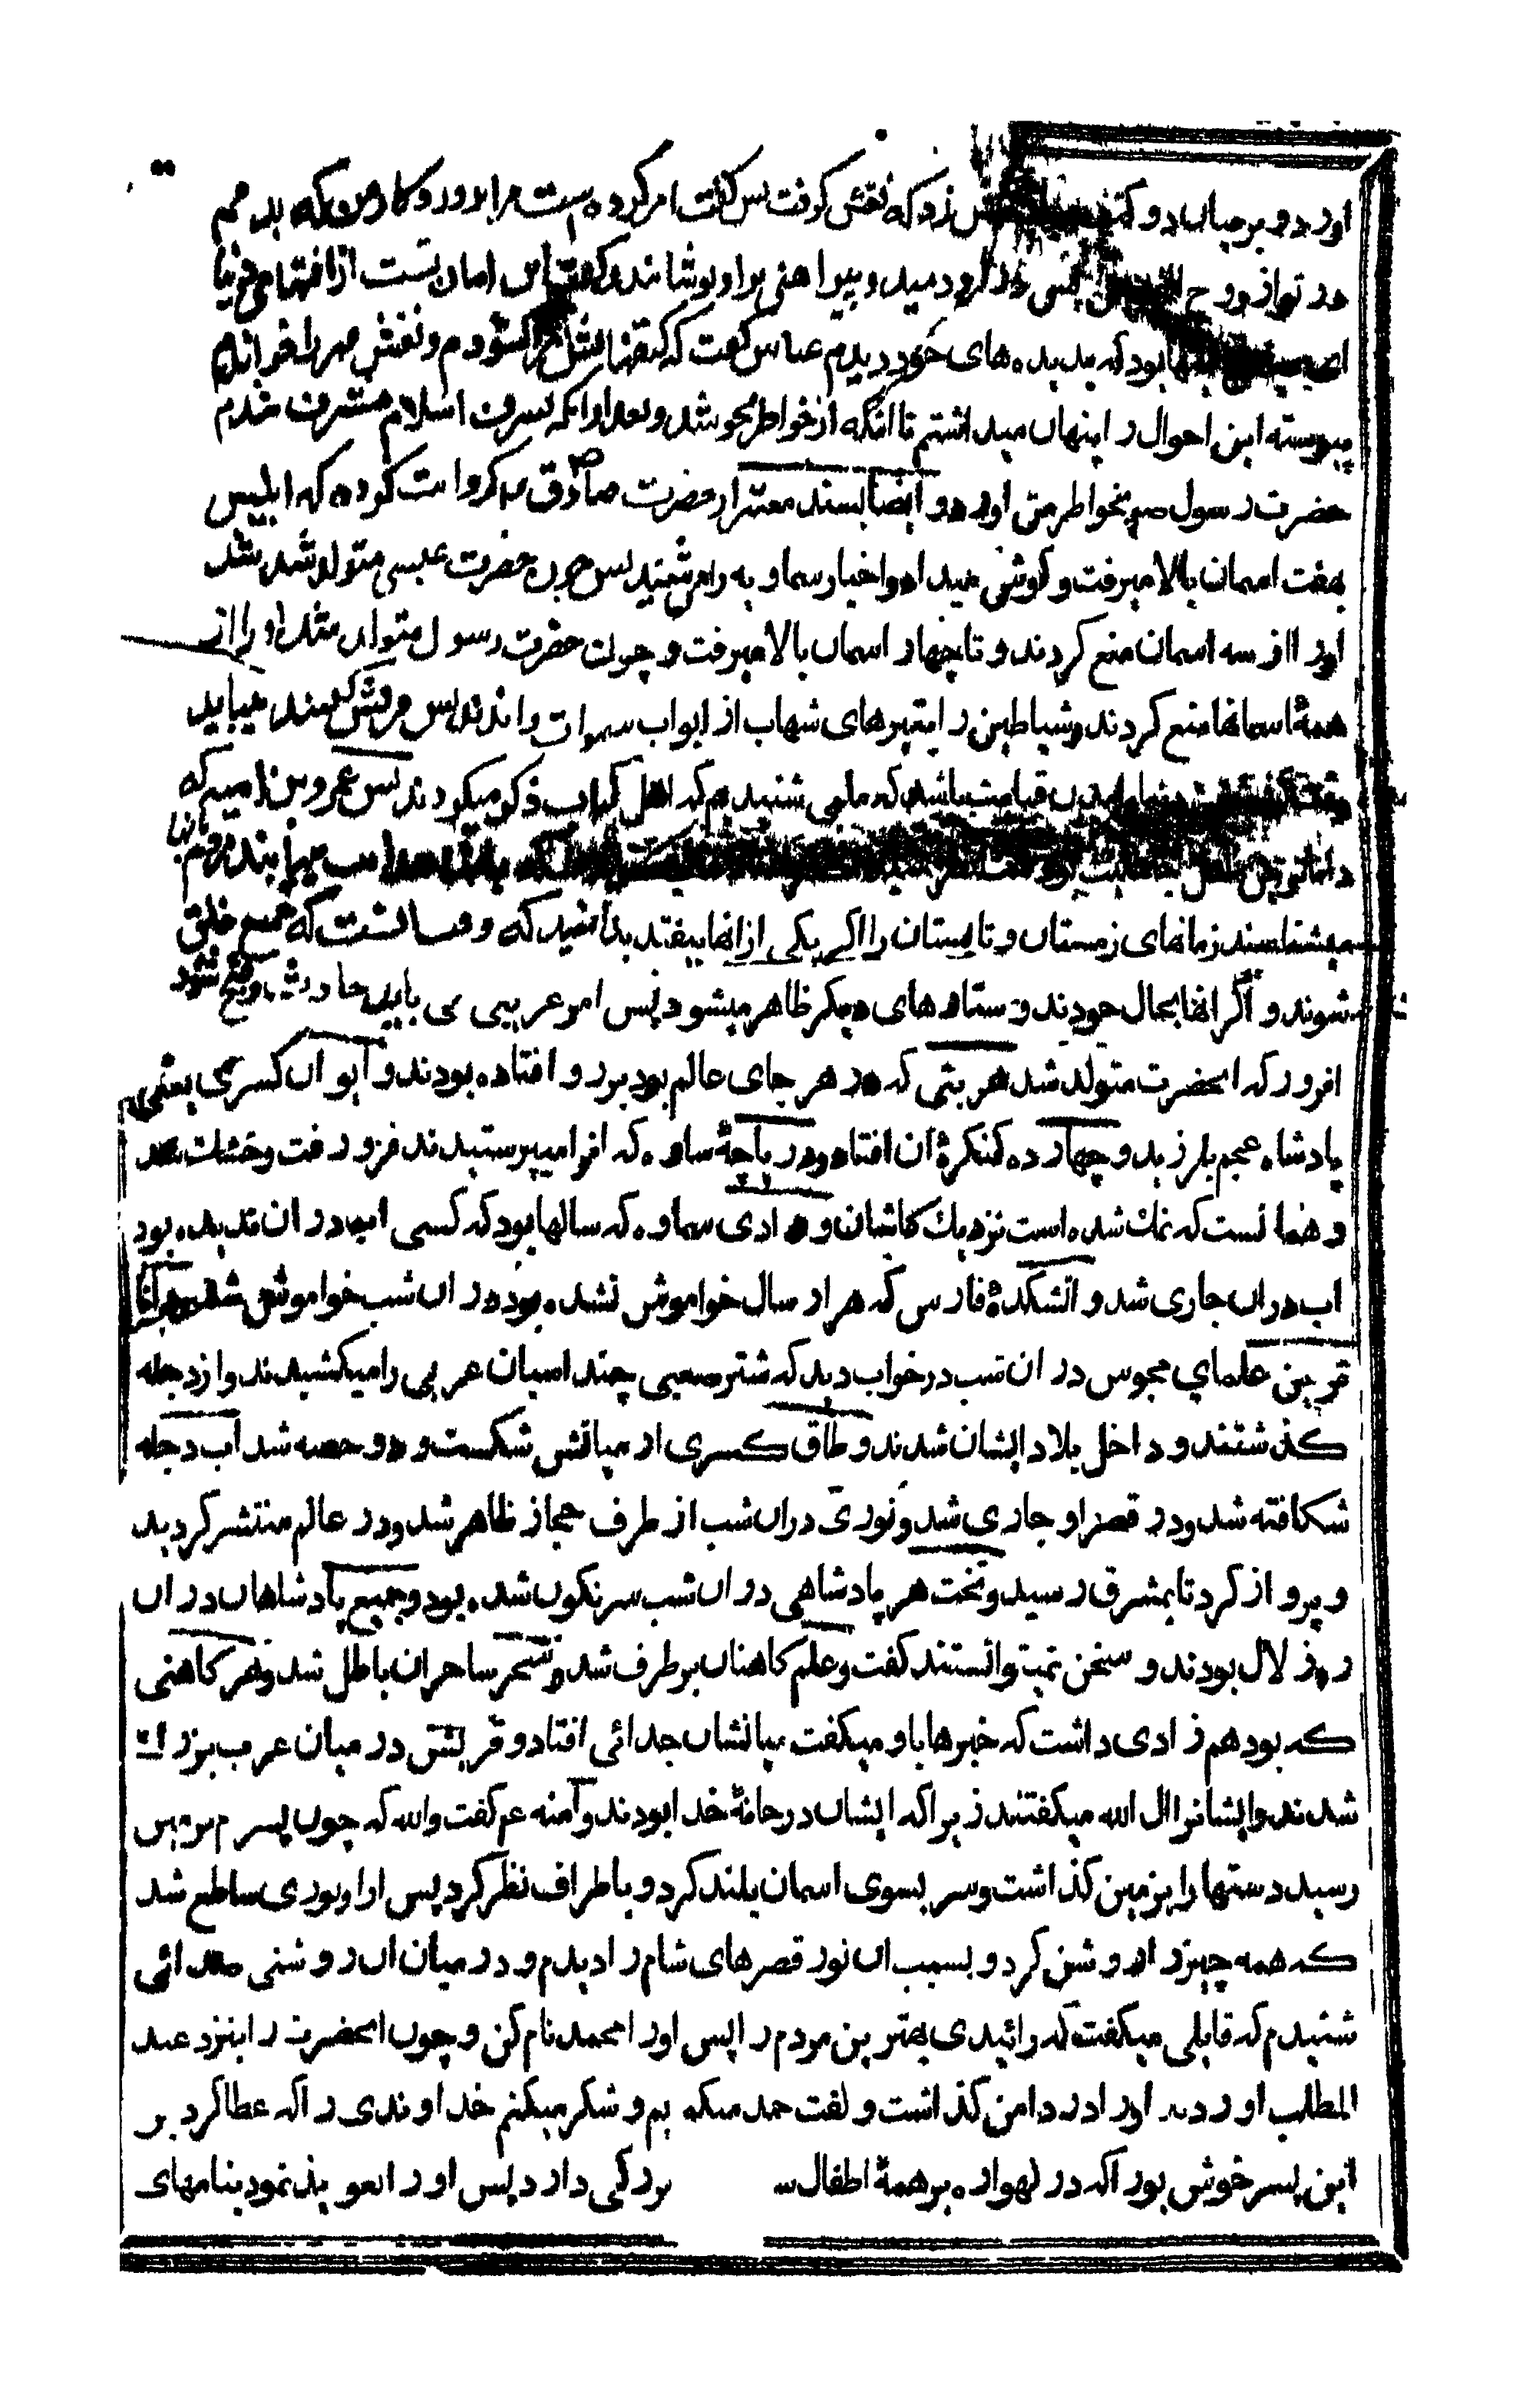 اورد و بر میان دو کتف زد که نقش گرفت پس گفت امر کرده است مرا پروردگار من که بدمم
در تو از روح القدس پس در او دمید و پیراهنی براو پوشانید و گفت این امان تست از افتهای دنیا
اینها بود که بدیده های خود دیدم عباس گفت که کتفهایش را گشودم و نقش مهر را خواندم
پیوسته این احوال را پنهان میداشتم تا انکه از خواطرم محو شد و بعد از انکه بشرف اسلام مشرف شدم
حضرت رسول ص بخواطر من اورد و ایضا بسند معتبر از حضرت صادق ع روایت کرده که ابلیس
بهفت اسمان بالا میرفت و گوش میداد و اخبار سماویه را می شنید پس چون حضرت عیسی متولد شد
او را از سه اسمان منع کردند و تا چهار اسمان بالا میرفت و چون حضرت رسول متولد شد او را از
همهٔ اسمانها منع کردند و شیاطین را بتیرهای شهاب از ابواب سموات راندند پس قریش گفتند میباید
قیامت باشد که ما می شنیدیم که اهل کتاب ذکر میکردند پس عمرو بن امیه که
داناترین اهل جاهلیت بود گفت نظر کنید
میشناسند زمانهای زمستان و تابستان را اگر یکی از انها بیفتد بدانید که وقت انست که جمیع خلق
شوند و اگر انها بحال خودند و ستاره های دیگر ظاهر میشود پس امر غریبی می باید حادث واقع شود
انروز که انحضرت متولد شد هر بتی که در هر جای عالم بود بررو افتاده بودند و ایوان کسری یعنی
پادشاه عجم بلرزید و چهارده کنگرهٔ ان افتاد و دریاچهٔ ساوه که انرا میپرستیدند فرو رفت و خشک شد
و همانست که نمک شده است نزدیک کاشان و وادی سماوه که سالها بود که کسی اب در ان ندیده بود
اب دران جاری شد و اتشکدهٔ فارس که هزار سال خواموش نشده بود در ان شب خواموش شد و داناترین
علمای مجوس در ان شب در خواب دید که شتر صعبی چند اسبان عربی را میکشیدند و از دجله
گذشتند و داخل بلاد ایشان شدند و طاق کسری از میانش شکست و دو حصه شد اب دجله
شکافته شد و در قصر او جاری شد و نوری دران شب از طرف حجاز ظاهر شد و در عالم منتشر گردید
و پرواز کرد تا بمشرق رسید و تخت هر پادشاهی دران شب سرنگون شده بود و جمیع پادشاهان دران
روز لال بودند و سخن نمیتوانستند گفت و علم کاهنان برطرف شد و سحر ساحران باطل شد و هر کاهنی
که بود همزادی داشت که خبرها باو میگفت میانشان جدائی افتاد و قریش در میان عرب بزرگ
شدند و ایشانرا ال الله میگفتند زیرا که ایشان در خانهٔ خدا بودند و آمنه ع م گفت والله که چون پسرم بر زمین
رسید دستها را بزمین گذاشت و سر بسوی اسمان بلند کرد و باطراف نظر کرد پس از او نوری ساطع شد
که همه چیز را روشن کرد و بسبب ان نور قصرهای شام را دیدم و در میان ان روشنی صدائی
شنیدم که قایلی میگفت که زائیدی بهترین مردم را پس او را محمد نام کن و چون انحضرت را بنزد عبد
المطلب اوردند او را در دامن گذاشت و گفت حمد میگویم و شکر میکنم خداوندی را که عطا کرد بر
این پسر خوش بو را که در گهواره بر همهٔ اطفال بزرگی دارد پس او را تعویذ نمود بنامهای